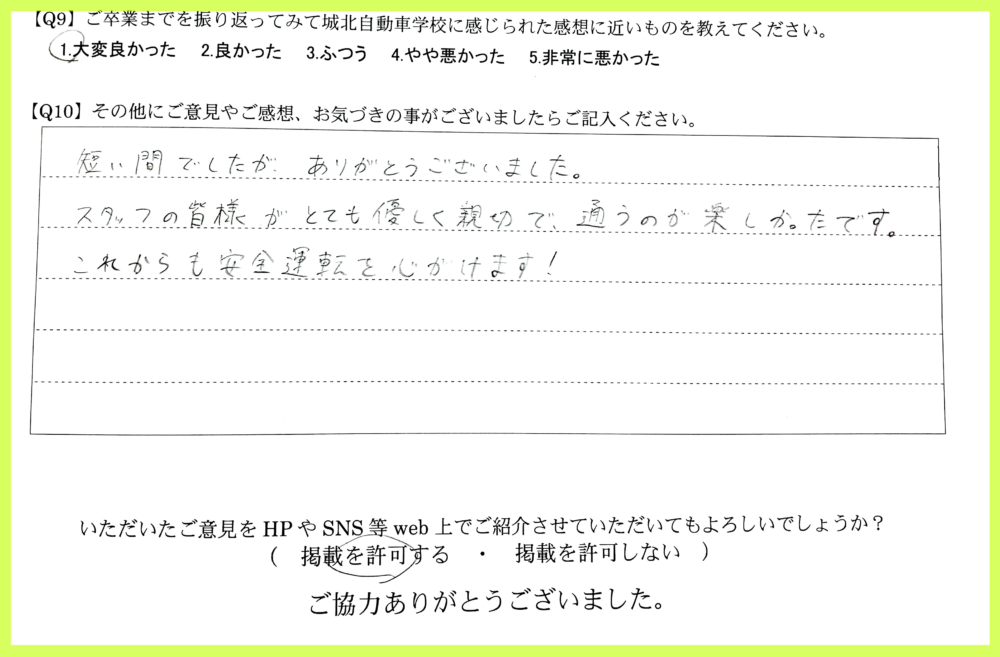 【Q9】ご卒業までを振り返ってみて城北自動車学校に感じられた感想に近いものを教えてください。
1.大変良かった 2.良かった 3.ふつう 4.やや悪かった 5.非常に悪かった
【Q10】その他にご意見やご感想、お気づきの事がございましたらご記入ください。
短い間でしたが、ありがとうございました。
スタッフの皆様がとても優しく親切で、通うのが楽しかったです。
これからも安全運転を心がけます!
いただいたご意見をHPやSNS等web上でご紹介させていただいてもよろしいでしょうか?
( 掲載を許可する ・ 掲載を許可しない )
ご協力ありがとうございました。